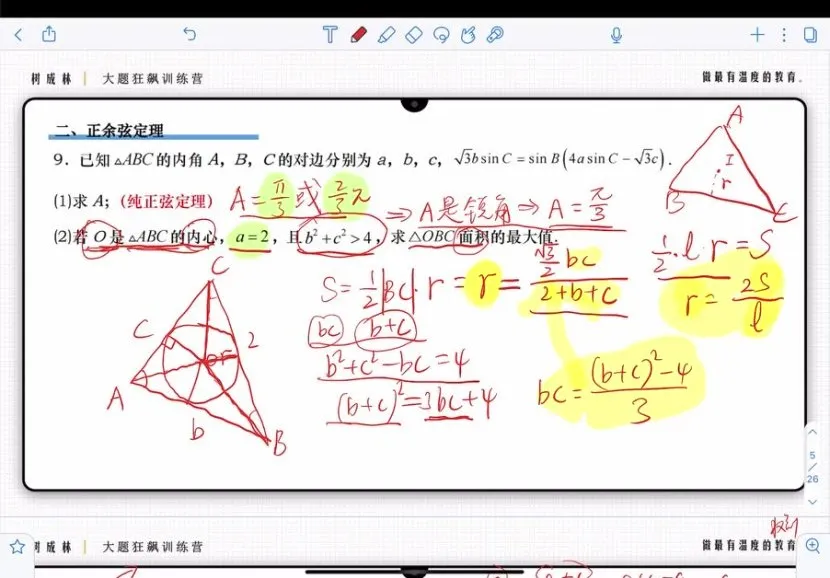 树成林 | 大题狂飙训练营
做最有温度的教育。
二、正余弦定理
9. 已知△ABC的内角 A，B，C的对边分别为 a，b，c，√3b sin C = sin B(4a sin C − √3c).
(1)求 A；(纯正弦定理) A = π/3 或 2/3π ⇒ A是锐角 ⇒ A = π/3
(2)若 O 是△ABC的内心，a=2，且b²+c²>4，求△OBC面积的最大值.
A
I
r
B
C
1/2·l·r = S
r = 2S/l
S = 1/2|BC|·r = r = (√3/2 bc)/(2+b+c)
bc b+c
b²+c²−bc=4
(b+c)²=3bc+4
bc = ((b+c)²−4)/3
C
C
2
A
b
B
5
/
26
树成林 | 大题狂飙训练营
做最有温度的教育